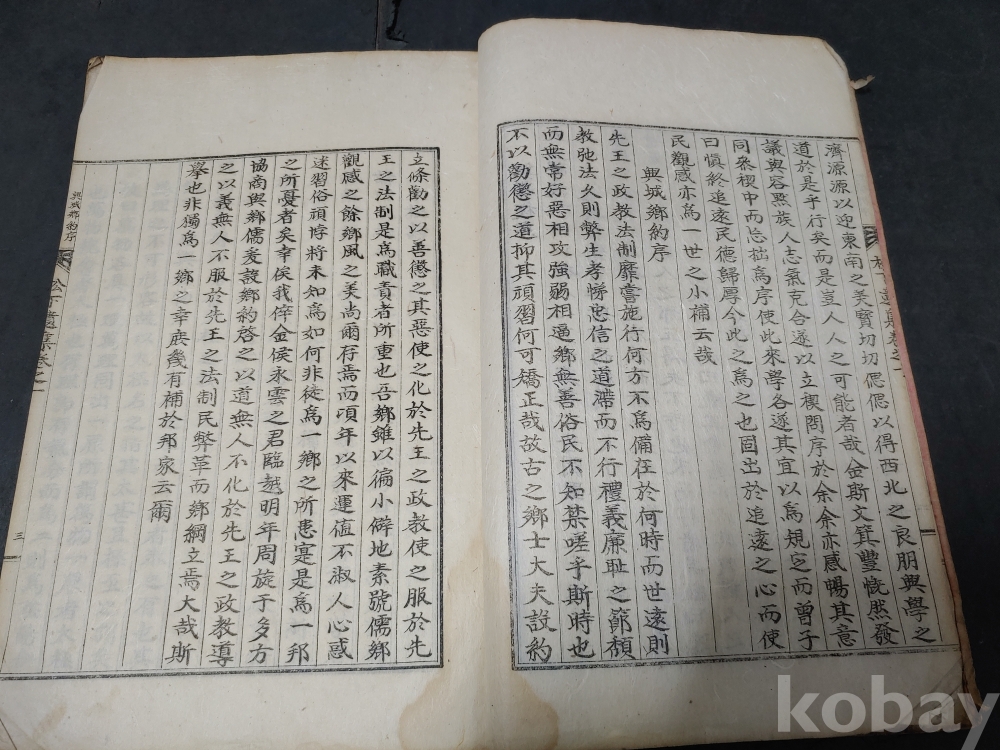 濟源源以迎東南之美寶切切偲偲以得西北之良朋興學之
道於是乎行矣而是豈人人之可能者哉金斯文箕豐慨然發
議與容黙族人志氣克合遂以立稧問序於余余亦感暢其意
同來稧中而忘拙爲序使此來學各遂其宜以爲規定而曾子
曰愼終追遠民德歸厚今此之爲之也固出於追遠之心而使
民觀感亦爲一世之小補云哉
興城鄉約序
先王之政教法制靡嘗施行何方不爲備在於何時而世遠則
教弛法久則弊生孝悌忠信之道滯而不行禮義廉耻之節頹
而無常好惡相攻強弱相逼鄉無善俗民不知禁嗟乎斯時也
不以勸懲之道抑其頑習何可矯正哉故古之鄉士大夫設約
立條勸之以善懲之其惡使之化於先王之政教使之服於先
王之法制是爲職責者所重也吾鄉雖以偏小僻地素號儒鄉
觀感之餘鄉風之美尚爾存焉而頃年以來運值不淑人心惑
迷習俗頑悖將未知爲如何非徒爲一鄉之所患寔是爲一邦
之所憂者矣幸俟我倅金侯永雲之君臨越明年周旋于多方
協商與鄉儒爰設鄉約啓之以道無人不化於先王之政教導
之以義無人不服於先王之法制民弊革而鄉綱立焉大哉斯
擧也非獨爲一鄉之幸庶幾有補於邦家云爾
興城鄉約序
三